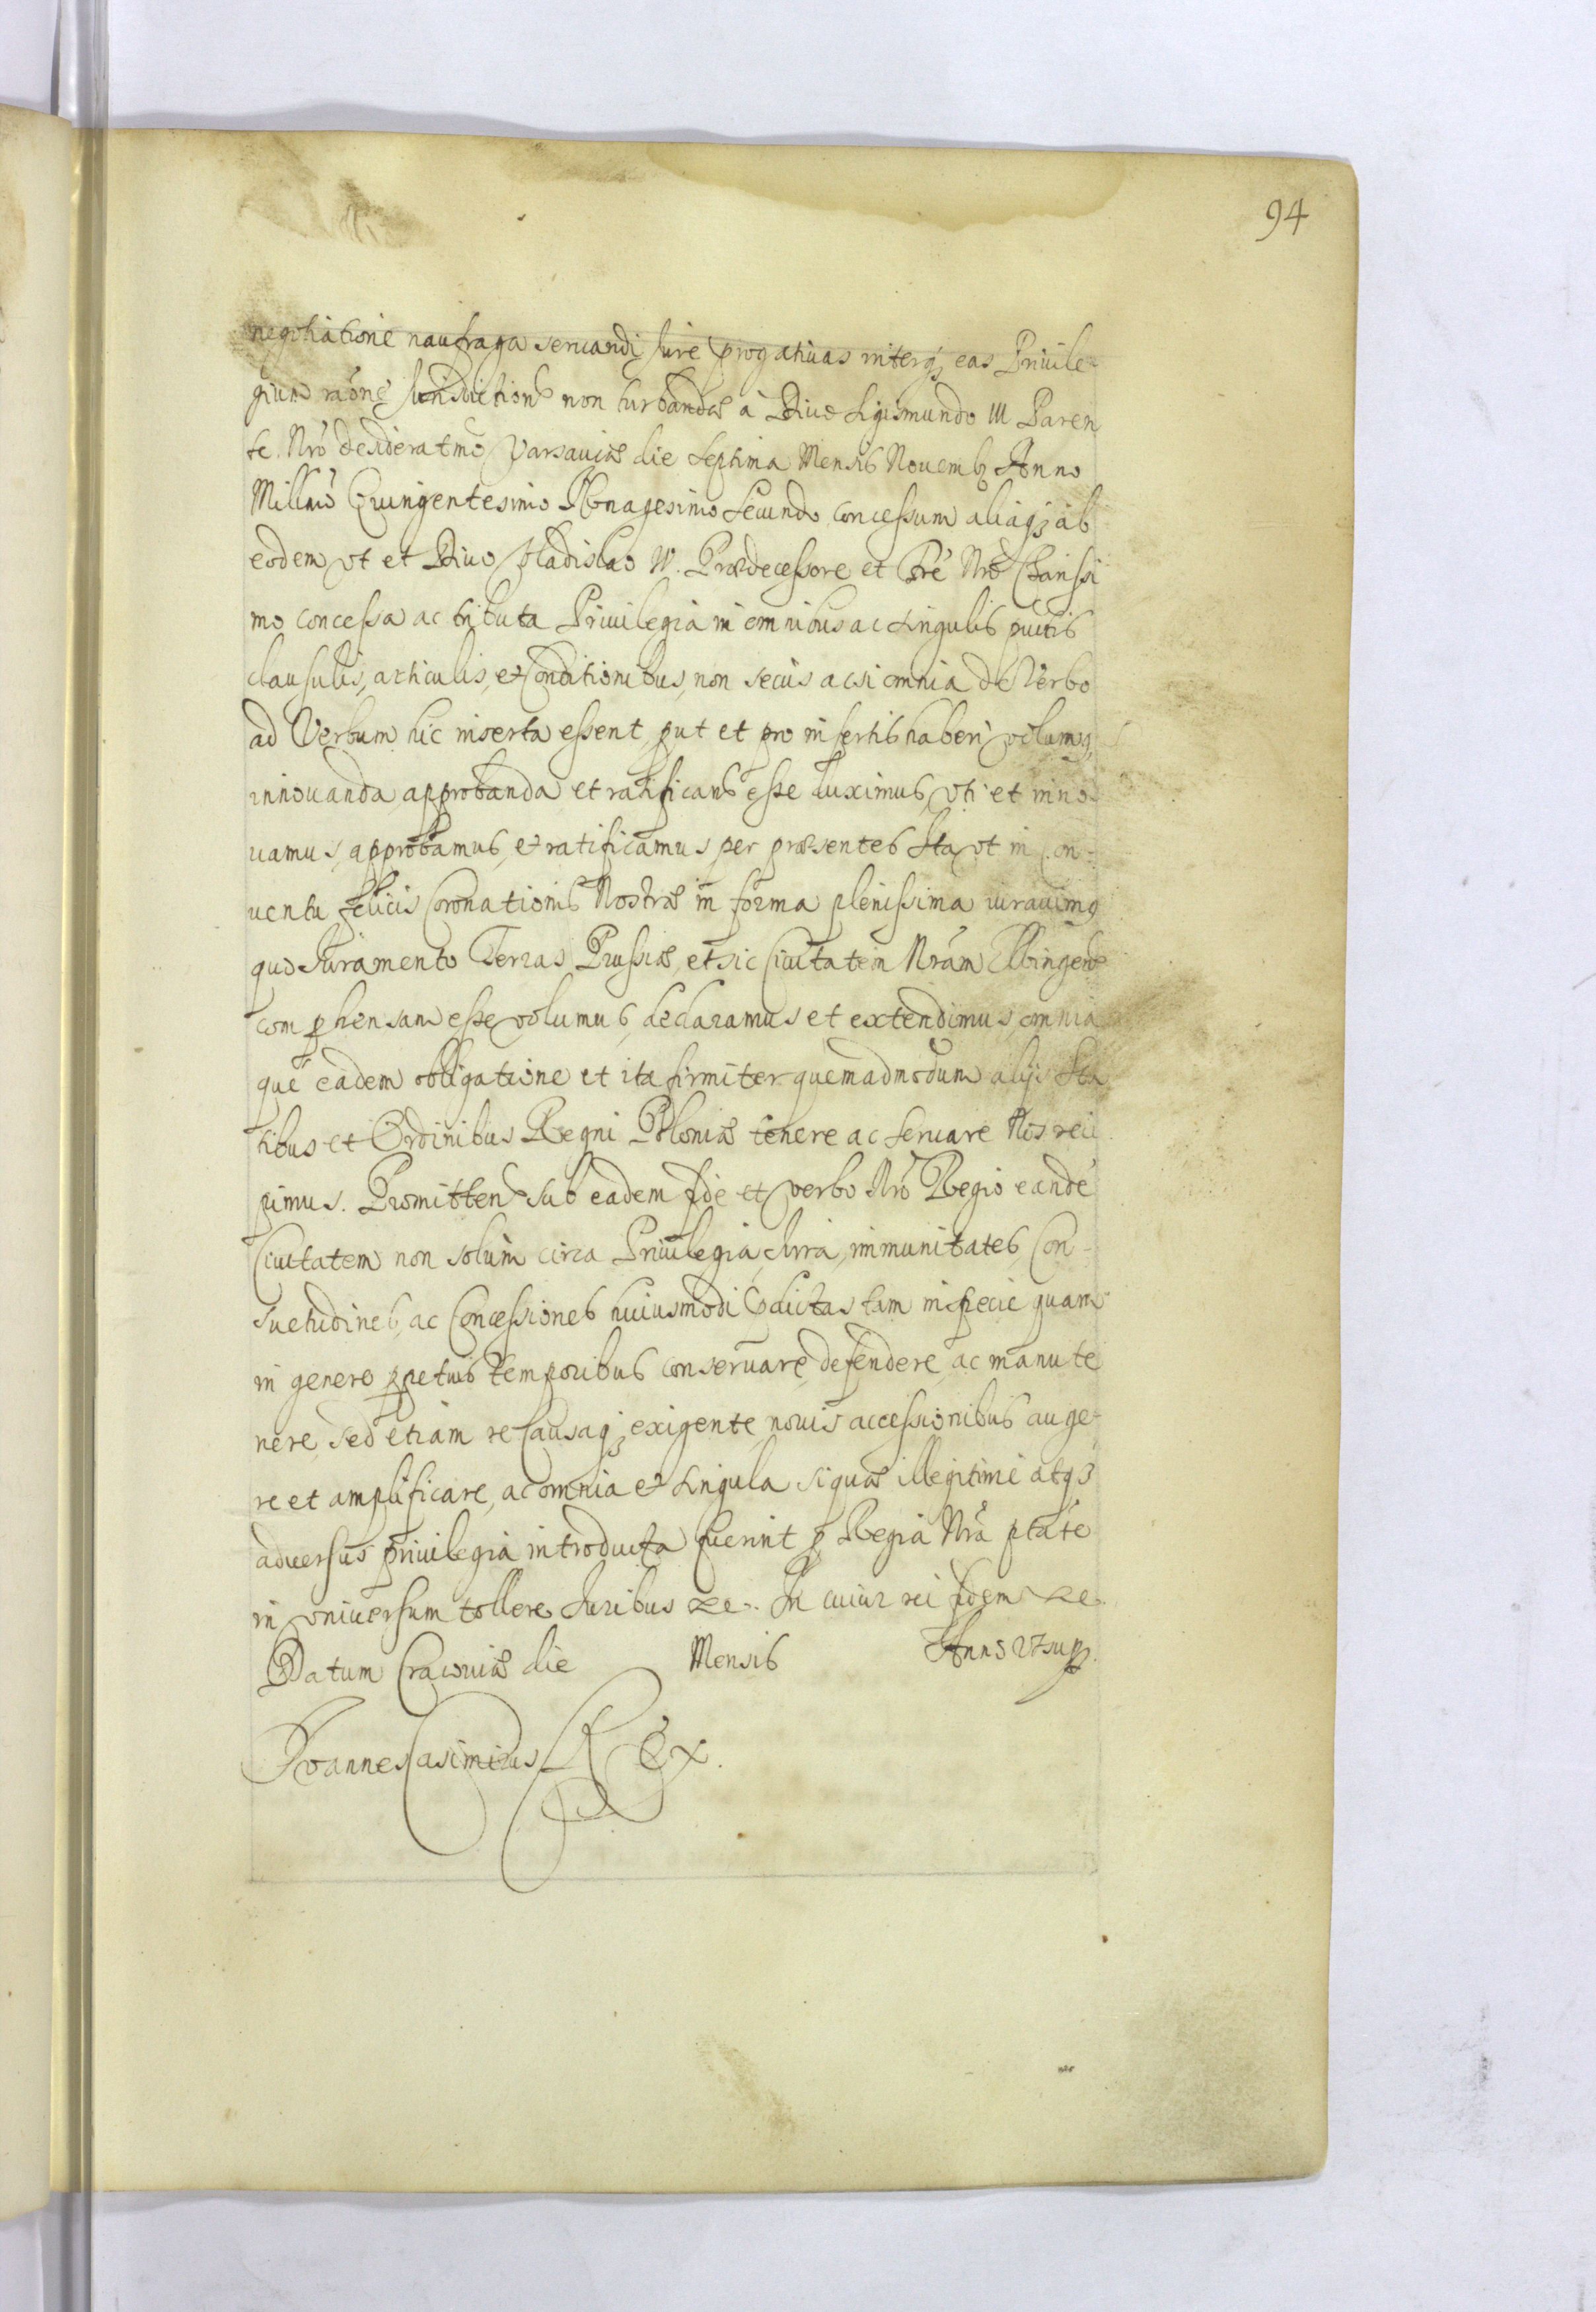 94
negotiatione naufraga seruandi Jure progatiuas interq; eas Priuile-
gium raõne Jurisdictionis non turbandæ à Diuo Sigismundo III Paren
te Nrõ desideratmõ Varsauiæ die Septima Mensis Nouemb Anno
Millmõ Quingentesimo Nonagesimo Secundo concessum aliaq; ab
eodem vt et Diuo Vladislao IV. Prædecessore et Fre Nrõ Charissi
mo concessa ac tributa Priuilegia in omnibus ac singulis puctis
clausulis, articulis, et Conditionibus, non secus acsi omnia de Verbo
ad Verbum hic inserta essent, put et pro insertis haberi volumus,
innouanda approbanda et ratificans esse duximus, vti et inno
uamus, approbamus, et ratificamus per præsentes Ita vt in Con-
uentu felicis Coronationis Nostræ in forma plenissima iurauimus
quo Juramento Terras Prussiæ, et sic Ciuitatem Nram Elbingens
comphensam esse volumus, declaramus et extendimus, omnia
que eadem obligatione et ita firmiter quemadmodum alijs Sta
tibus et Ordinibus Regni Poloniæ tenere ac seruare Nos reci
pimus. Promittens sub eadem fide et verbo Nrõ Regio eandē
Ciuitatem non solum circa Priuilegia, Jura, immunitates, Con-
suetudines, ac Concessiones huiusmodi pdictas tam in specie quam
in genere ppetuis temporibus conseruare, defendere, ac manute
nere, sed etiam re Causaq; exigente, nouis accessionibus auge-
re et amplificare, ac omnia et singula siquæ illegitime atq3
aduersus priuilegia introducta fuerint p Regia Nra ptate
in vniuersum tollere Juribus &c. In cuius rei fidem &c.
Datum Cracouiæ die Mensis Anno 27sup.
Joannes Casimirus Rex.